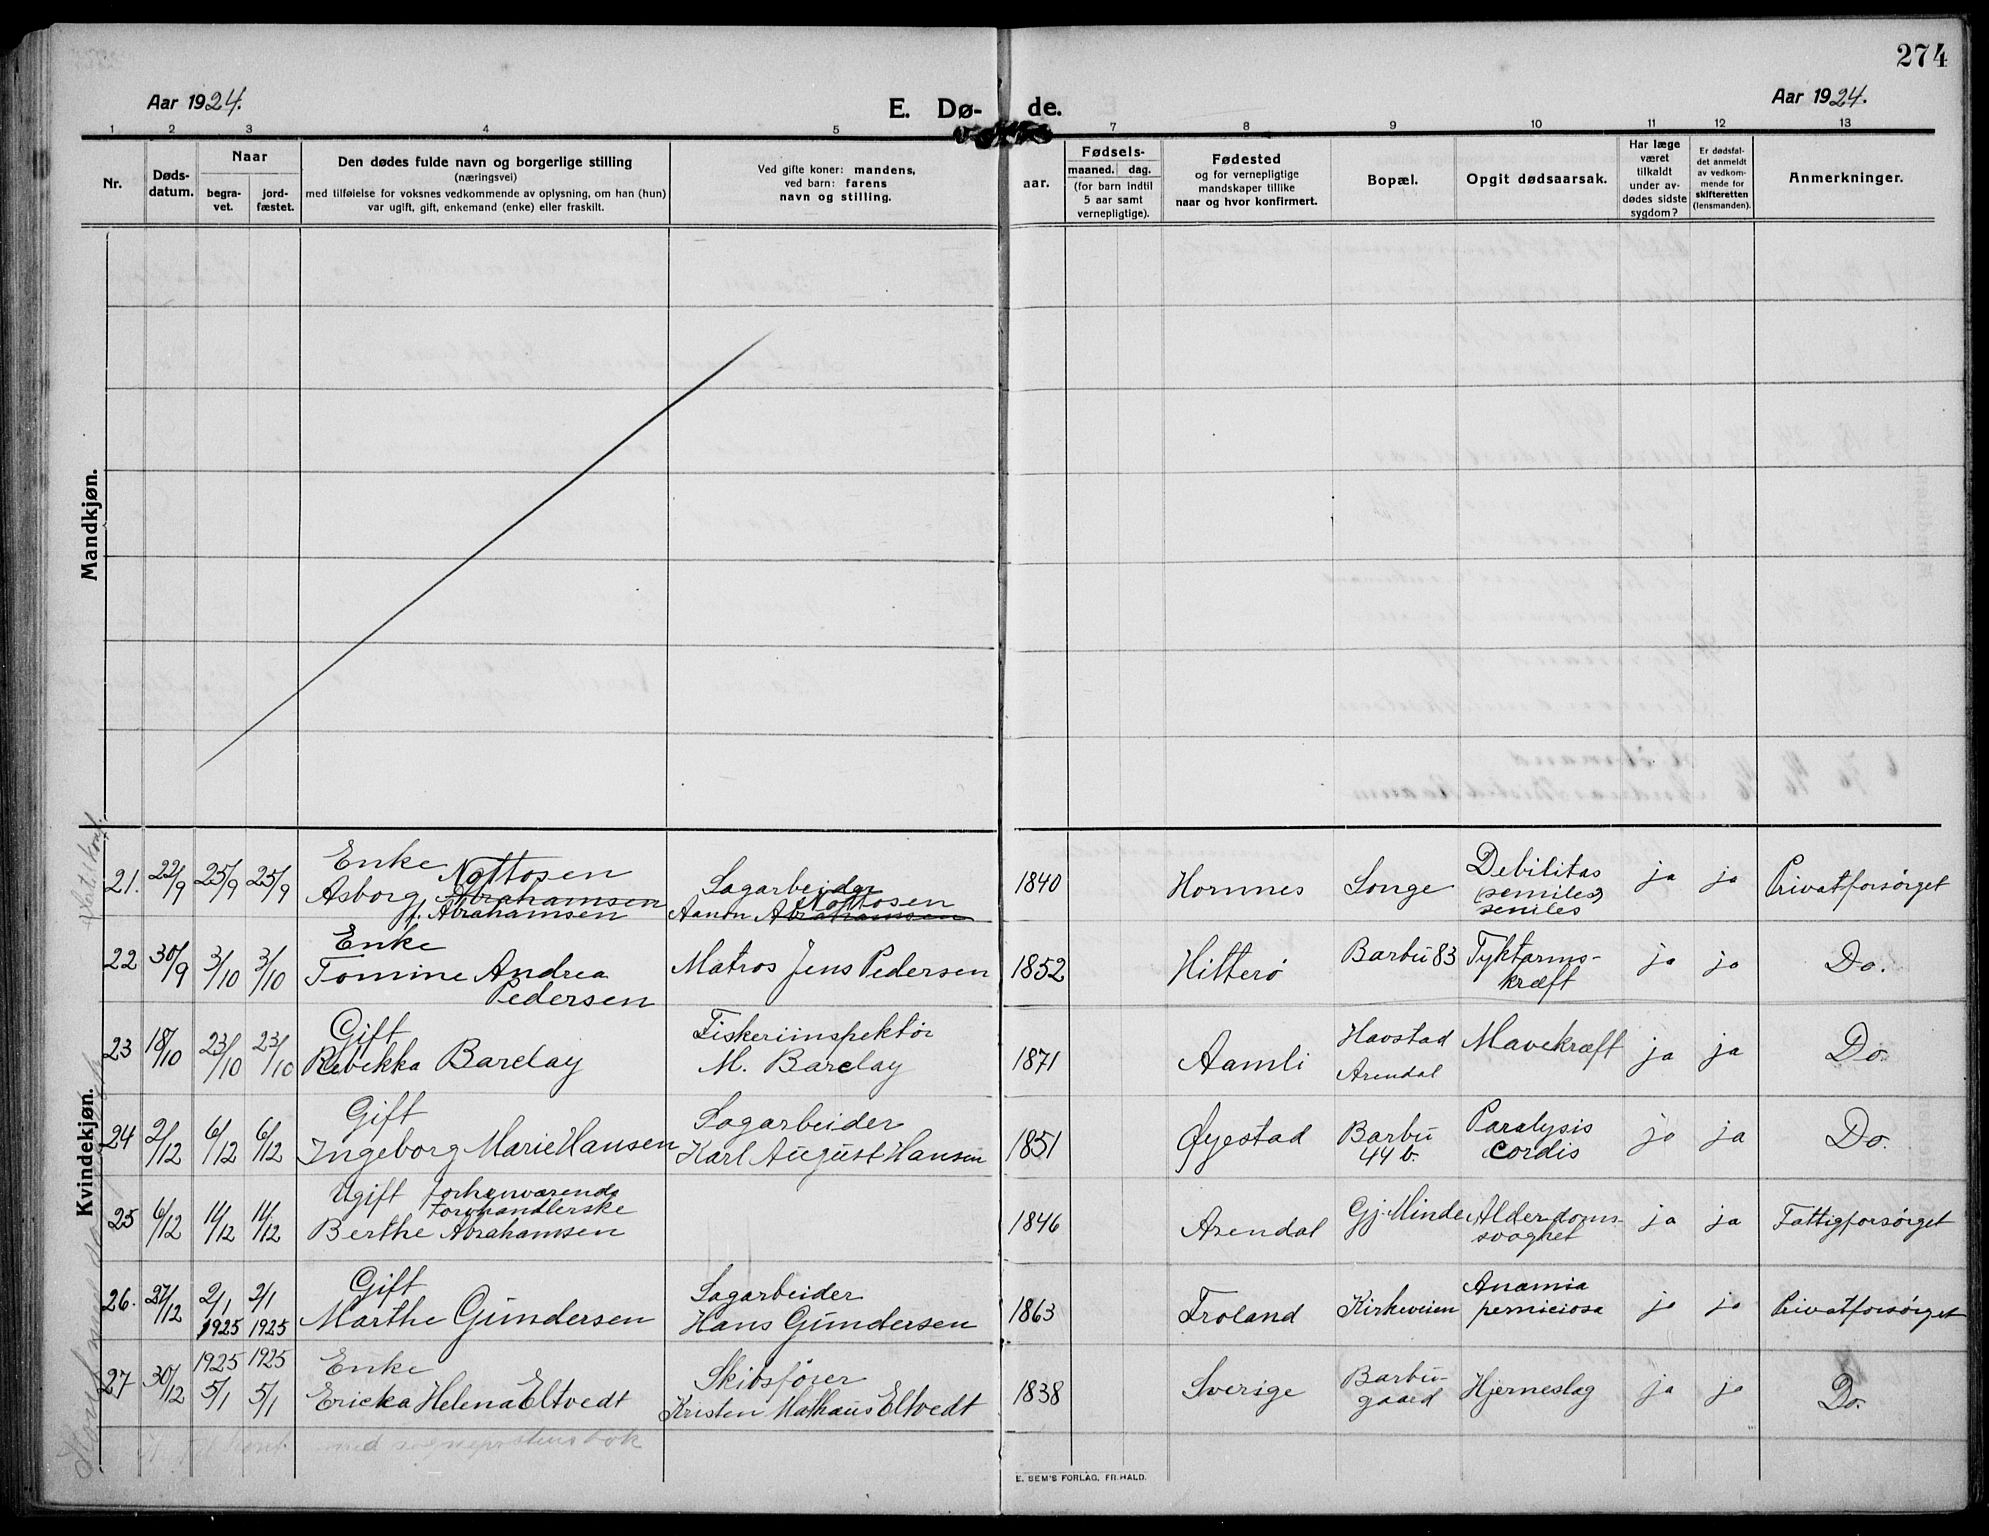 274
Aar 1924.
E. Dø- de.
Aar 1924.
1 2 3 4 5 7 8 9 10 11 12 13
Nr.
Døds-
datum.
Naar
begra-
vet.
jord-
fæstet.
Den dødes fulde navn og borgerlige stilling
(næringsvei)
med tilføielse for voksnes vedkommende av oplysning, om han (hun)
var ugift, gift, enkemand (enke) eller fraskilt.
Ved gifte koner: mandens,
ved barn: farens
navn og stilling.
aar.
Fødsels-
maaned. dag.
(for barn indtil
5 aar samt
vernepligtige).
Fødested
og for vernepligtige
mandskaper tillike
naar og hvor konfirmert.
Bopæl.
Opgit dødsaarsak.
Har læge
været
tilkaldt
under av-
dødes sidste
sygdom?
Er dødsfal-
det anmeldt
av vedkom-
mende for
skifteretten
(lensmanden).
Anmerkninger.
Mandkjøn.
Kvindekjøn.
21. 22/9 25/9 25/9 Enke Nottosen
Asborg Abrahamsen
f. Abrahamsen
Sagarbeider
Nottosen
Aanon Abrahamsen
1840 Hornnes Songe Debilitas
(semiles)
seniles
ja ja Privatforsørget
22 30/9 3/10 3/10 Enke
Tomine Andrea
Pedersen
Matros Jens Pedersen
1852 Hitterø Barbu 83 Tyktarms-
kræft
ja ja Do.
23 18/10 23/10 23/10 Gift
Rebekka Barclay
Fiskeriinspektør
M. Barclay
1871 Aamli Havstad
Arendal
Mavekræft ja ja Do.
24 2/12 6/12 6/12 Gift
Ingeborg Marie Hansen
Sagarbeider
Karl August Hansen
1851 Øyestad Barbu
44 b.
Paralysis
cordis
ja ja Do.
25 6/12 11/12 11/12 Ugift forhenværende
Torvhandlerske
Berthe Abrahamsen
1846 Arendal Gj. Minde Alderdoms-
svaghet
ja ja Fattigforsørget
26. 27/12 2/1 2/1
1925 1925
Gift
Marthe Gundersen
Sagarbeider
Hans Gundersen
1863 Froland Kirkeveien Anæmia
perniciosa
ja ja Privatforsørget
27 30/12 1925 1925
5/1 5/1
Enke
Ericka Helena Eltvedt
Skibsfører
Kristen Mathæus Eltvedt
1838 Sverige Barbu-
gaard
Hjerneslag ja ja Do.
med sogneprestens bok
E. SEM'S FORLAG, FR.HALD.